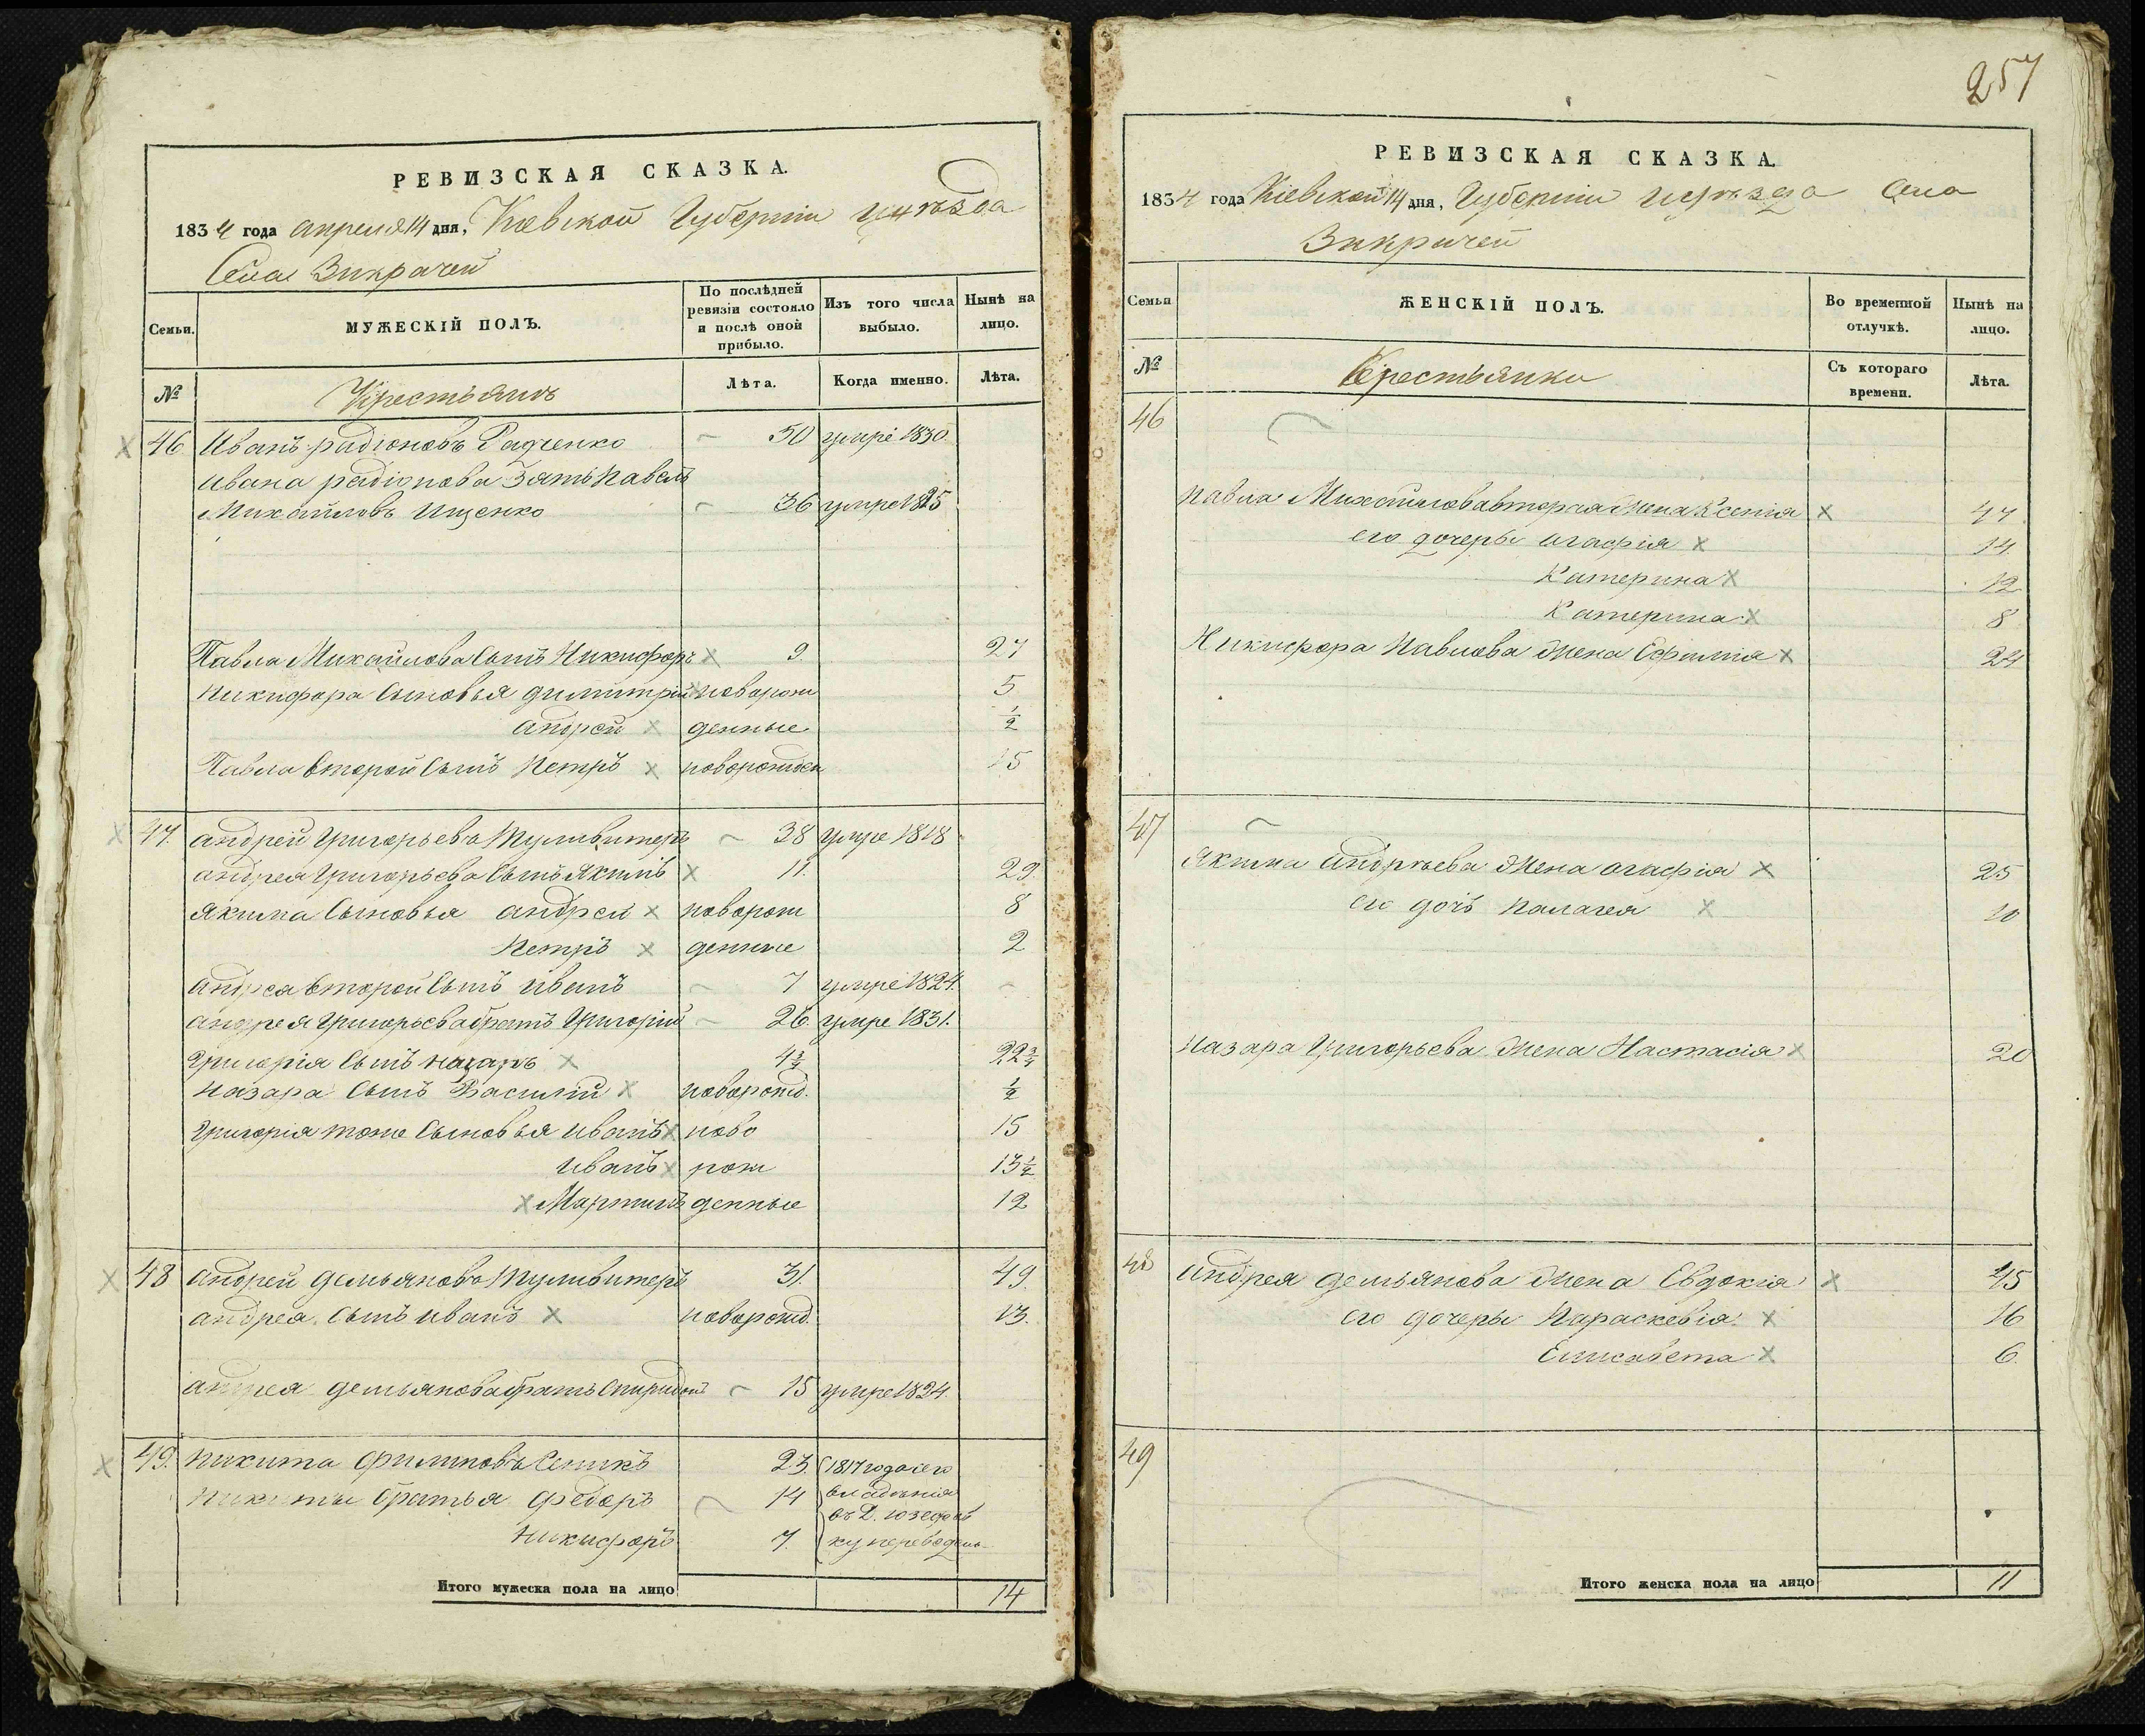 257
РЕВИЗСКАЯ СКАЗКА.
1834 года апреля 14 дня, Киевской Губернии уезда
Села Зикрачей
Семьи.
МУЖЕСКІЙ ПОЛЪ.
По послѣдней ревизіи состояло и послѣ оной прибыло.
Изъ того числа выбыло.
Нынѣ на лицо.
№
Крестьянъ
Лѣта.
Когда именно.
Лѣта.
46 Иванъ радіоновъ Радченко 50 умре 1830
Ивана радіонова Зять Павелъ
Михайловъ Ищенко 36 умре 1825
Павла Михайлова Сынъ Никифоръ 9. 27
Никифора Сыновья димитрій новорож 5
андрей денные ½
Павла второй Сынъ Петръ новорожден 15
47. андрей Григорьевъ Туливитеръ 38 умре 1818
андрея Григорьева Сынъ Якимъ 11. 29.
Якима Сыновья андрей новорож 8
Петръ денные 2
андрея второй Сынъ иванъ 7 умре 1824.
андрея Григорьева братъ Григорій 26. умре 1831.
Григорія Сынъ назаръ 4¾ 22¾
назара Сынъ Василій новорожд. ½
Григорія тоже Сыновья иванъ ново 15
иванъ рож 13½
Мартинъ денные 12
48 андрей демьяновъ Туливитеръ 31. 49.
андрея Сынъ иванъ новорожд. 13.
андрея демьянова братъ Спиридонъ 15 умре 1824.
49. никита филиповъ Сеникъ 23. 1817 года его
никиты братья федоръ 14 владенія
въ Д. юзефов
никифоръ 7. ку переведены
Итого мужеска пола на лицо 14
РЕВИЗСКАЯ СКАЗКА.
1834 года Кіевской 14 дня, Губерніи уезда Села
Зикрачей
Семьи
ЖЕНСКІЙ ПОЛЪ.
Во временной отлучкѣ.
Нынѣ на лицо.
№
Крестьянки
Съ котораго времени.
Лѣта.
46
Павла Михайлова вторая Жена Ксенія 47
его дочери агафія 14.
Катерина 12
Катерина 8
Никифора Павлова Жена Ефимія 24
47
Якима андрѣева Жена агафія 25
его дочь палагея 10
назара Григорьева Жена Настасія 20
48 андрея демьянова Жена Евдокія 45
его дочери Параскевія 16
Елисавета 6.
49
Итого женска пола на лицо 11